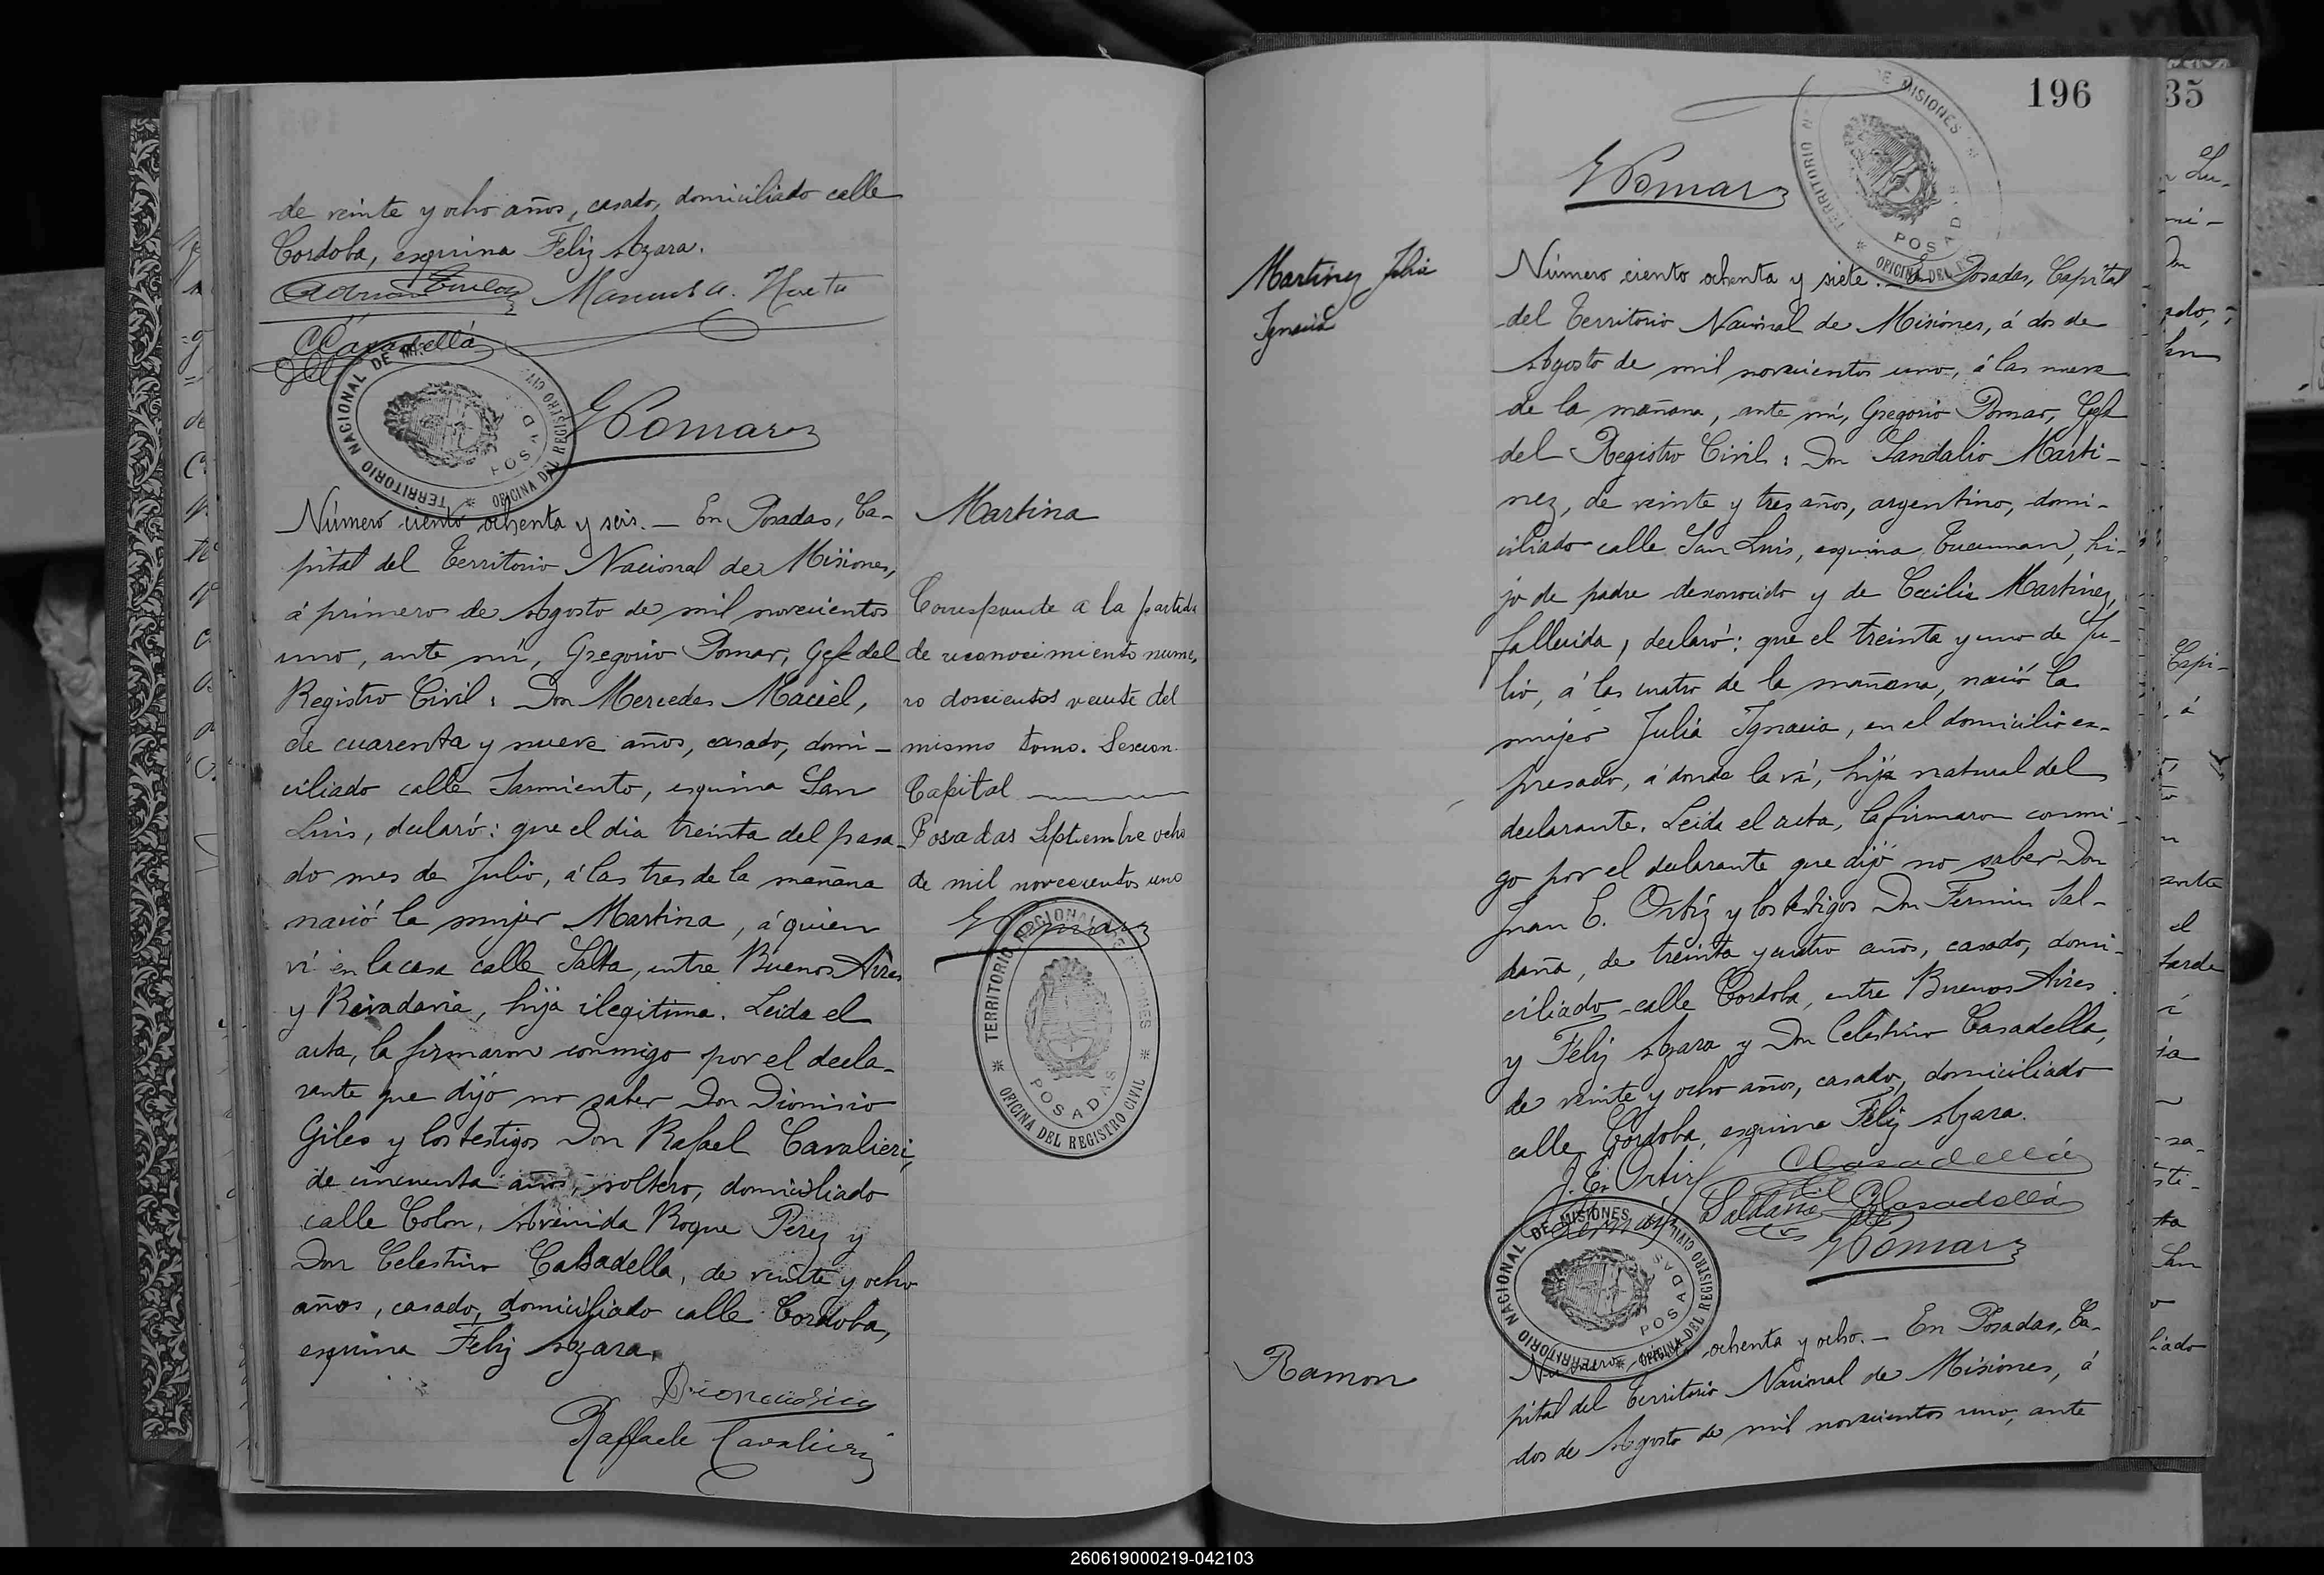 de veinte y ocho años, casado, domiciliado calle
Cordoba, esquina Feliz Azara.
Manuel A. Huerta
CCasadella
TERRITORIO NACIONAL DE MI
OFICINA DEL REGISTRO CIVIL
POSAD
GPomar
Número ciento ochenta y seis. — En Posadas, Ca-
pital del Territorio Nacional de Misiones,
á primero de Agosto de mil novecientos
uno, ante mi, Gregorio Pomar, Gefe del
Registro Civil: Don Mercedes Maciel,
de cuarenta y nueve años, casado, domi-
ciliado calle Sarmiento, esquina San
Luis, declaró: que el dia treinta del pasa-
do mes de Julio, á las tres de la mañana
nació la mujer Martina, á quien
ví en la casa calle Salta, entre Buenos Aires
y Rivadavia, hija ilegitima. Leida el
acta, la firmaron conmigo por el decla-
rante que dijó no saber Don Dionisio
Giles y los testigos Don Rafael Cavalieri,
de cincuenta años, soltero, domiciliado
calle Colon, Avenida Roque Perez y
Don Celestino Casadella, de veinte y ocho
años, casado, domiciliado calle Cordoba,
esquina Feliz Azara.
Raffaele Cavalieri
Martina
Corresponde a la partida
de reconocimiento nume,
ro doscientos veinte del
mismo tomo. Seccion
Capital
Posadas Septiembre ocho
de mil novecientos uno
GPomar
TERRITORIO NACIONAL DE MISIONES
POSADAS
OFICINA DEL REGISTRO CIVIL
196
GPomar
TERRITORIO N
DE MISIONES
POSAD
OFICINA DEL
Martinez Julia
Ignacia
Número ciento ochenta y siete. — En Posadas, Capital
del Territorio Nacional de Misiones, á dos de
Agosto de mil novecientos uno, á las nueve
de la mañana, ante mi, Gregorio Pomar, Gefe
del Registro Civil: Don Sandalio Marti-
nez, de veinte y tres años, argentino, domi-
ciliado calle San Luis, esquina Tucuman, hi-
jo de padre desconocido y de Cecilia Martinez,
fallecida, declaró: que el treinta y uno de Ju-
lio, á las cuatro de la mañana, nació la
mujer Julia Ignacia, en el domicilio ex-
presado, á donde la ví, hija natural del
declarante. Leida el acta, la firmaron conmi-
go por el declarante que dijó no saber Don
Juan E. Ortíz y los testigos Don Fermin Sal-
daña, de treinta y cuatro años, casado, domi-
ciliado calle Cordoba, entre Buenos Aires
y Feliz Azara y Don Celestino Casadella,
de veinte y ocho años, casado, domiciliado
calle Cordoba, esquina Feliz Azara.
J. E. Ortiz
CCasadella
Fermin Saldaña
CCasadella
GPomar
TERRITORIO NACIONAL DE MISIONES
OFICINA DEL REGISTRO CIVIL
POSADAS
Ramon
Número ciento ochenta y ocho. — En Posadas, Ca-
pital del Territorio Nacional de Misiones, á
dos de Agosto de mil novecientos uno, ante
35
Capi-
ante
el
tarde
San
260619000219-042103